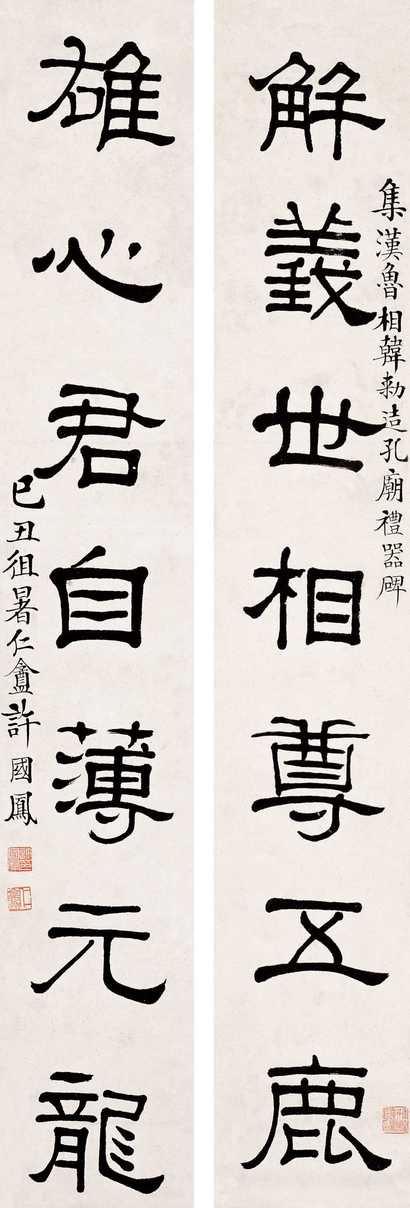 集漢魯相韓勑造孔廟禮器碑
解義世相尊五鹿
雄心君自薄元龍
己丑徂暑仁盦許國鳳